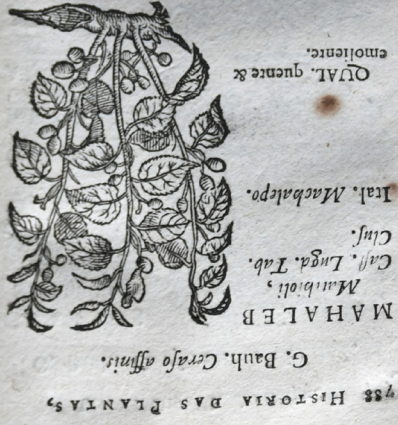 HISTORIA DAS PLANTAS,
G. Bauh. Ceraſo affinis.
MAHALEB
Mathioli,
Caſt. Lugd. Tab.
Cluſ.
Ital. Machalepo.
QUAL. quente &
emoliente.